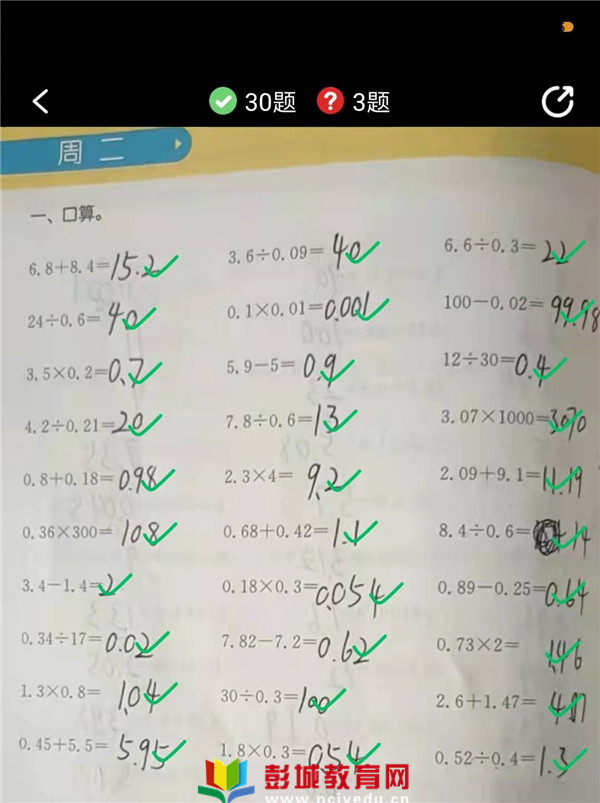 30题 3题
周二
一、口算。
6.8+8.4=15.2 3.6÷0.09=40 6.6÷0.3=22
24÷0.6=40 0.1×0.01=0.001 100-0.02=99.98
3.5×0.2=0.7 5.9-5=0.9 12÷30=0.4
4.2÷0.21=20 7.8÷0.6=13 3.07×1000=3070
0.8+0.18=0.98 2.3×4=9.2 2.09+9.1=11.19
0.36×300=108 0.68+0.42=1.1 8.4÷0.6=14
3.4-1.4=2 0.18×0.3=0.054 0.89-0.25=0.64
0.34÷17=0.02 7.82-7.2=0.62 0.73×2=1.46
1.3×0.8=1.04 30÷0.3=100 2.6+1.47=4.07
0.45+5.5=5.95 1.8×0.3=0.54 0.52÷0.4=1.3
彭城教育网
www.pcjyedu.cn